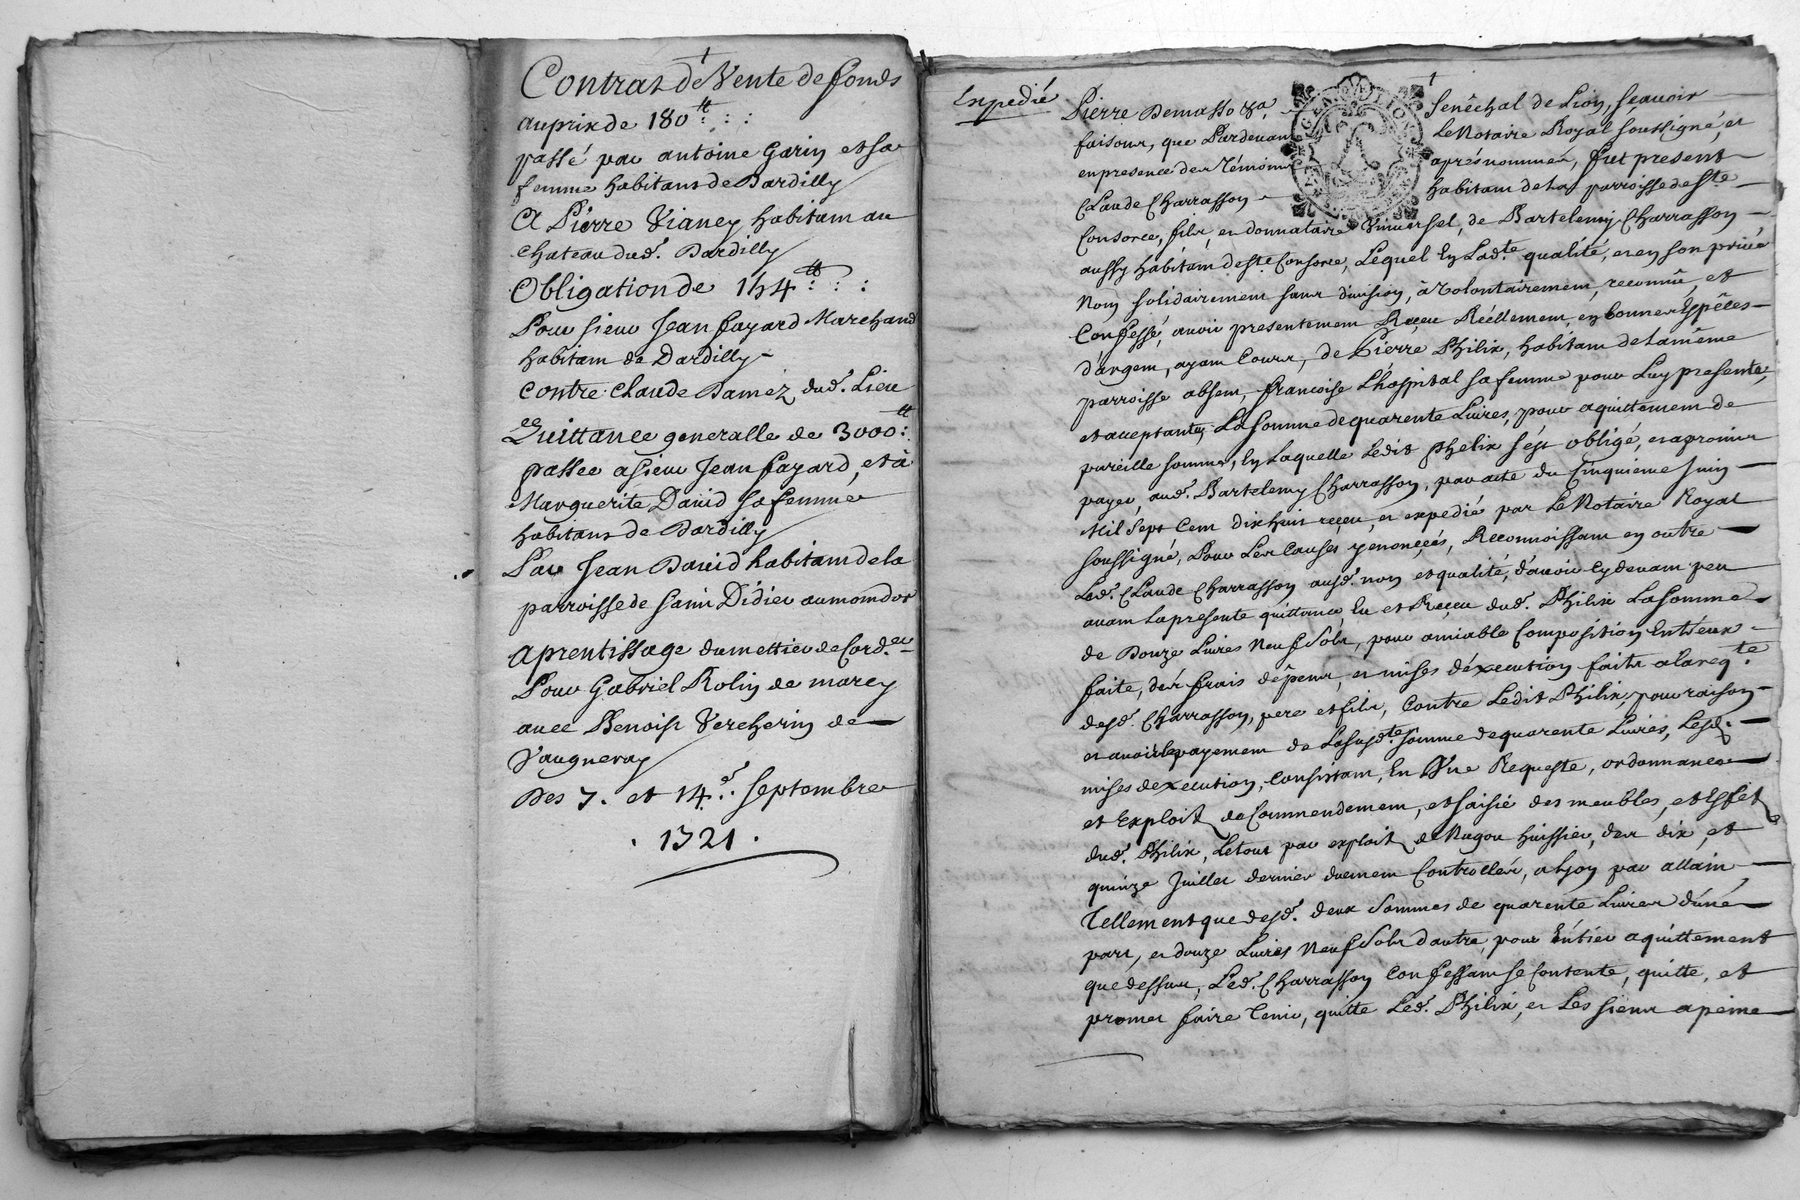 Contrat de Vente de fonds
au prix de 180ᵗᵗ : :
passé par antoine Garin et sa
femme habitans de Dardilly
A Pierre Vianey habitant au
chateau dud. Dardilly
Obligation de 154ᵗᵗ : :
Pour sieur Jean fayard Marchand
habitant de Dardilly
contre Claude Daméz dud. Lieu
Quittance generalle de 3000ᵗᵗ
passée a sieur Jean fayard, et à
Marguerite David sa femme
habitans de Dardilly
Par Jean David habitant de la
parroisse de saint Didier au mondor
Aprentissage du mettier de Cord.er
Pour Gabriel Rolin de marcy
avec Benoist Vercherin de
Vaugneray
Des 7. et 14.e septembre
. 1721 .
Expedié
Pierre Demasso &a. Senêchal de Lion, sçavoir
faisons, que Pardevant Le Notaire Royal soussigné, et
en presence des Témoins aprés nommés, fut present
Claude Charrasson habitant de la parroisse de Ste
Consorce, fils, et donnataire Vniversel, de Bartelemy Charrasson
aussy habitant de Ste Consorce, Lequel En Lad.te qualité, et en son privé
Nom solidairement sans division, à volontairement, reconnû, et
Confessé, avoir presentement Reçeu Réellement, en bonnes Espêces
d'argent, ayant Cours, de Pierre Philix, habitant de la même
parroisse absent, francoise L'hospital sa femme pour Luy presente,
et acceptante, La somme de quarente Livres, pour aquittement de
pareille somme, En Laquelle Ledit Phelix s'ést obligé, et a promis
payer, aud. Bartelemy Charrasson, par acte du Cinquieme Juin
Mil Sept Cent dix huit reçeu, et expedié par Le Notaire Royal
soussigné, Pour Les Causes y enoncées, Reconnoissant en outre
Led. Claude Charrasson ausd. nom et qualité, d'avoir Cydevant peu
avant La presente quittance, Eu et Reçeu dud. Philix La somme
de Douze Livres Neuf Sols, pour amiable Composition Entreux
faite, des frais dêpens, et mises d'éxecution faits a la req.te
desd. Charrasson, pere et fils, Contre Ledit Philix, pour raison
et avoir le payement de La susd.te somme de quarente Livres, Lesd.
mises d'execution, Consistant, En Vne Requeste, ordonnance
et Exploit de Commendement, et saisie des meubles, et Effets
dud. Philix, Le tout par exploit de Huissier, des dix, et
quinze Juillet dernier duement Controllés, a Lyon par allain
Tellement que desd. deux sommes de quarente Livres d'une
part, et douze Livres Neuf Sols d'autre, pour Entier aquittement
que dessus, Led. Charrasson Confessant se Contente, quitte, et
promet faire Tenir, quitte Led. Philix, et Les siens a peine